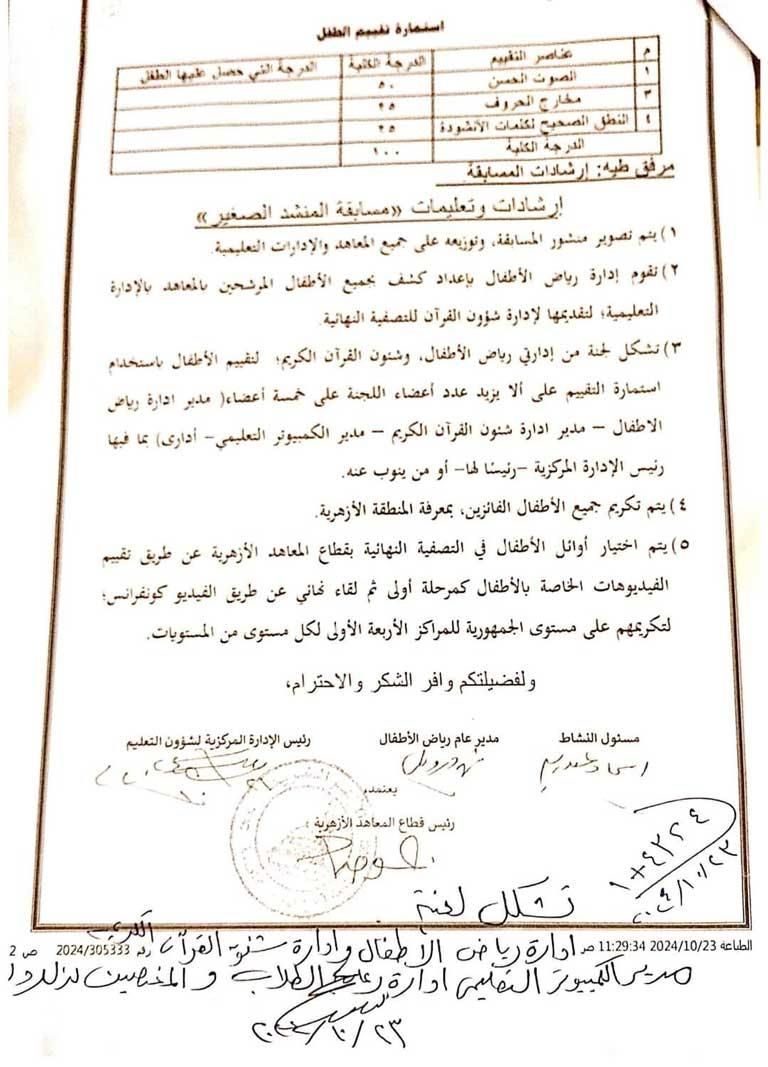 استمارة تقييم الطفل
م عناصر التقييم الدرجة الكلية الدرجة التي حصل عليها الطفل
١ الصوت الحسن ٥٠
٣ مخارج الحروف ٢٥
٤ النطق الصحيح لكلمات الأنشودة ٢٥
الدرجة الكلية ١٠٠
مرفق طيه: إرشادات المسابقة
إرشادات وتعليمات «مسابقة المنشد الصغير»
١) يتم تصوير منشور المسابقة، وتوزيعه على جميع المعاهد والإدارات التعليمية.
٢) تقوم إدارة رياض الأطفال بإعداد كشف بجميع الأطفال المرشحين بالمعاهد بالإدارة
التعليمية؛ لتقديمها لإدارة شؤون القرآن للتصفية النهائية.
٣) تشكل لجنة من إدارتي رياض الأطفال، وشئون القرآن الكريم؛ لتقييم الأطفال باستخدام
استمارة التقييم على ألا يزيد عدد أعضاء اللجنة على خمسة أعضاء( مدير ادارة رياض
الاطفال – مدير ادارة شئون القرآن الكريم – مدير الكمبيوتر التعليمي– أدارى) بما فيها
رئيس الإدارة المركزية –رئيسًا لها– أو من ينوب عنه.
٤) يتم تكريم جميع الأطفال الفائزين، بمعرفة المنطقة الأزهرية.
٥) يتم اختيار أوائل الأطفال في التصفية النهائية بقطاع المعاهد الأزهرية عن طريق تقييم
الفيديوهات الخاصة بالأطفال كمرحلة أولى ثم لقاء نهائي عن طريق الفيديو كونفرانس؛
لتكريمهم على مستوى الجمهورية للمراكز الأربعة الأولى لكل مستوى من المستويات.
ولفضيلتكم وافر الشكر والاحترام،
مسئول النشاط مدير عام رياض الأطفال رئيس الإدارة المركزية لشؤون التعليم
يعتمد،
رئيس قطاع المعاهد الأزهرية
١+٤٣٢٤
٢٠٢٤/١٠/٢٣
تشكل لجنة
الطباعة 2024/10/23 11:29:34 ص ادارة رياض الأطفال وادارة شئون القرآن الكريم رقم 2024/305333 ص 2
مدير الكمبيوتر التعليمى ادارة رعاية الطلاب و المختصين
٢٠٢٤/١٠/٢٣